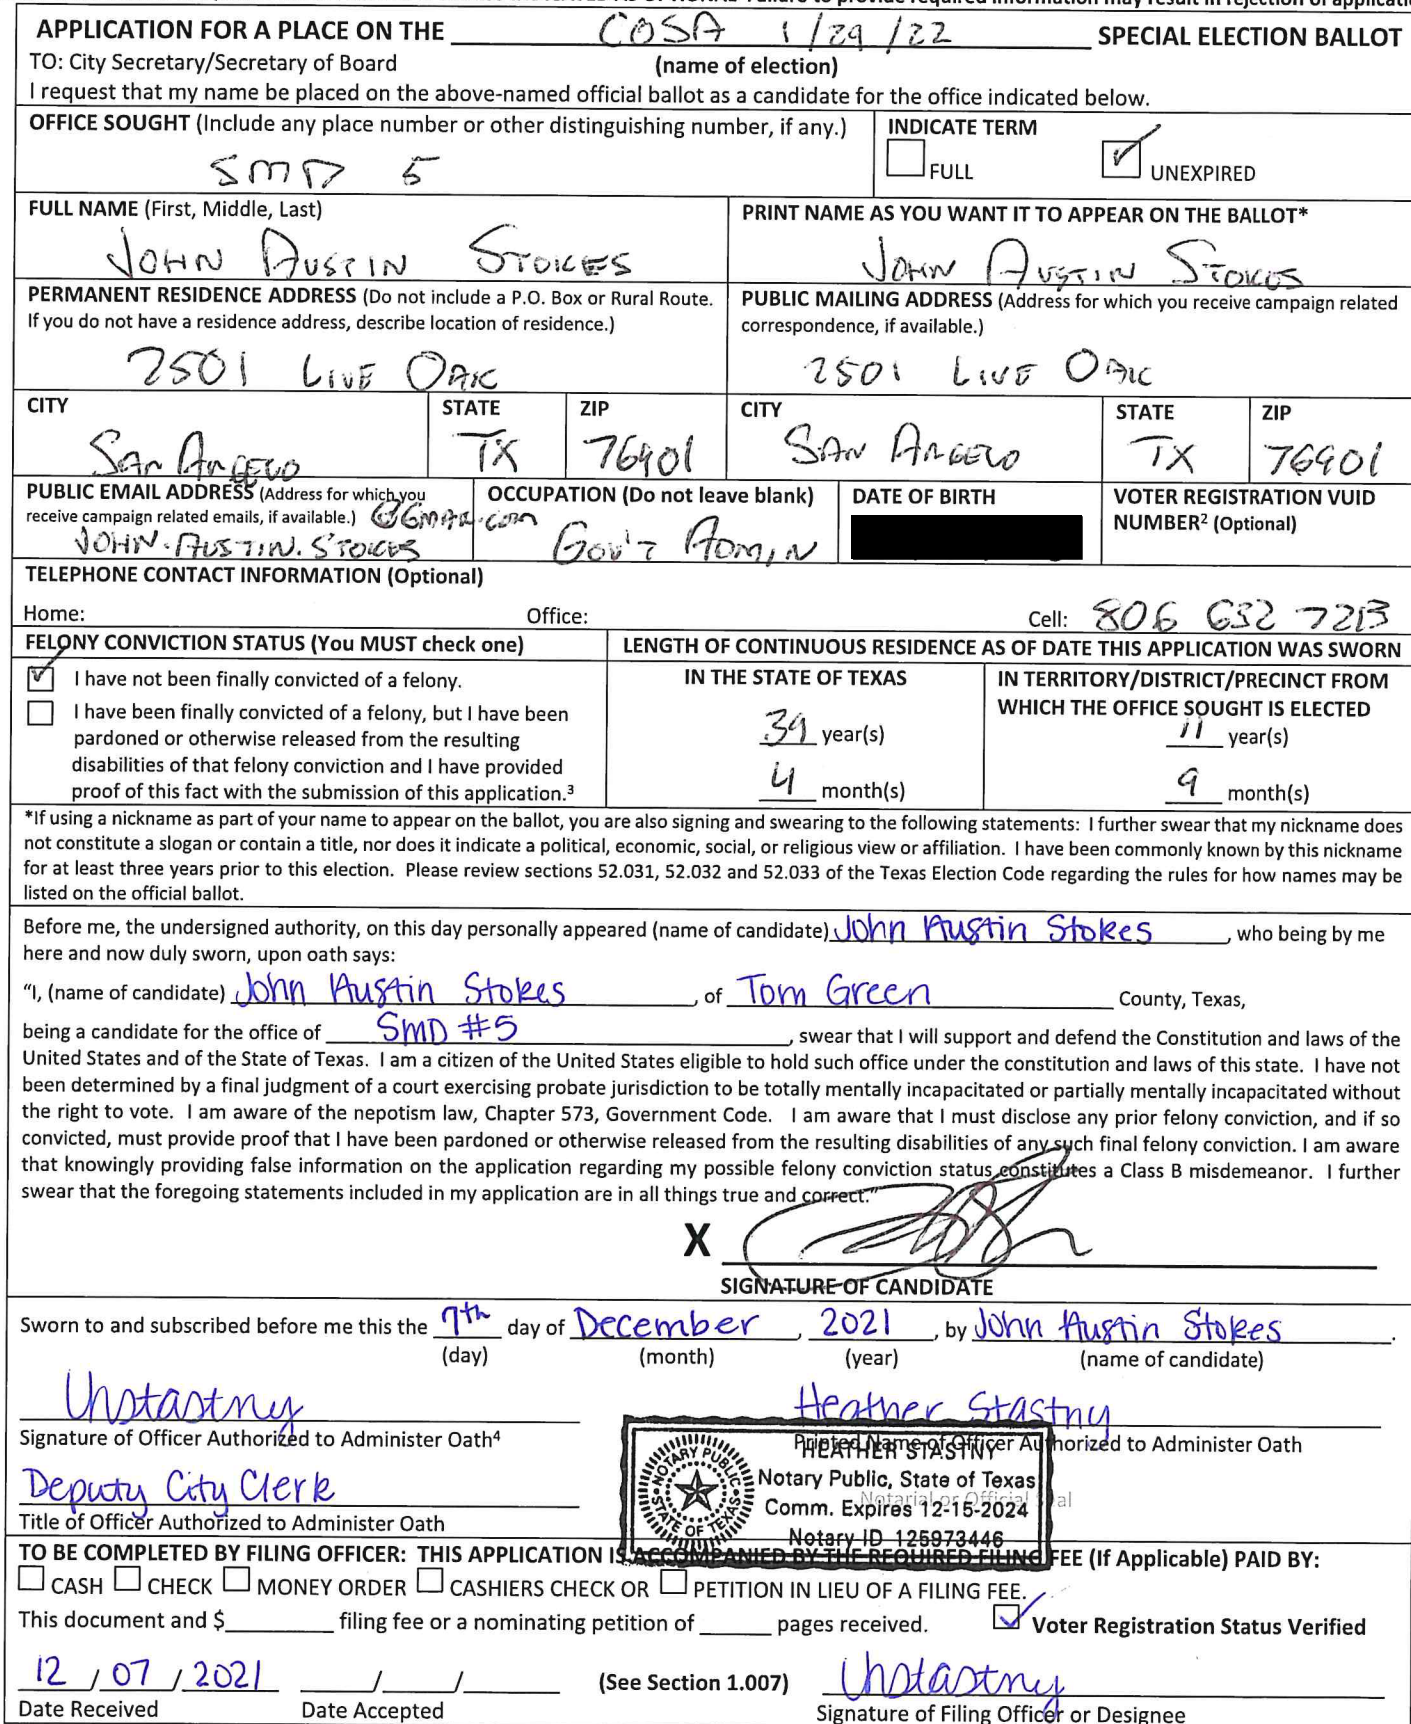 APPLICATION FOR A PLACE ON THE COSA 1/29/22 SPECIAL ELECTION BALLOT
TO: City Secretary/Secretary of Board (name of election)
I request that my name be placed on the above-named official ballot as a candidate for the office indicated below.
OFFICE SOUGHT (Include any place number or other distinguishing number, if any.)
SMD 5
INDICATE TERM
FULL
UNEXPIRED
FULL NAME (First, Middle, Last)
JOHN AUSTIN STOKES
PRINT NAME AS YOU WANT IT TO APPEAR ON THE BALLOT*
JOHN AUSTIN STOKES
PERMANENT RESIDENCE ADDRESS (Do not include a P.O. Box or Rural Route.
If you do not have a residence address, describe location of residence.)
2501 LIVE OAK
PUBLIC MAILING ADDRESS (Address for which you receive campaign related
correspondence, if available.)
2501 LIVE OAK
CITY STATE ZIP CITY STATE ZIP
SAN ANGELO TX 76901 SAN ANGELO TX 76901
PUBLIC EMAIL ADDRESS (Address for which you
receive campaign related emails, if available.) @GMAIL.COM
JOHN.AUSTIN.STOKES
OCCUPATION (Do not leave blank)
GOV'T ADMIN
DATE OF BIRTH
VOTER REGISTRATION VUID
NUMBER² (Optional)
TELEPHONE CONTACT INFORMATION (Optional)
Home: Office: Cell: 806 632 7213
FELONY CONVICTION STATUS (You MUST check one)
I have not been finally convicted of a felony.
I have been finally convicted of a felony, but I have been
pardoned or otherwise released from the resulting
disabilities of that felony conviction and I have provided
proof of this fact with the submission of this application.³
LENGTH OF CONTINUOUS RESIDENCE AS OF DATE THIS APPLICATION WAS SWORN
IN THE STATE OF TEXAS
39 year(s)
4 month(s)
IN TERRITORY/DISTRICT/PRECINCT FROM
WHICH THE OFFICE SOUGHT IS ELECTED
11 year(s)
9 month(s)
*If using a nickname as part of your name to appear on the ballot, you are also signing and swearing to the following statements: I further swear that my nickname does
not constitute a slogan or contain a title, nor does it indicate a political, economic, social, or religious view or affiliation. I have been commonly known by this nickname
for at least three years prior to this election. Please review sections 52.031, 52.032 and 52.033 of the Texas Election Code regarding the rules for how names may be
listed on the official ballot.
Before me, the undersigned authority, on this day personally appeared (name of candidate) John Austin Stokes, who being by me
here and now duly sworn, upon oath says:
"I, (name of candidate) John Austin Stokes, of Tom Green County, Texas,
being a candidate for the office of SMD #5, swear that I will support and defend the Constitution and laws of the
United States and of the State of Texas. I am a citizen of the United States eligible to hold such office under the constitution and laws of this state. I have not
been determined by a final judgment of a court exercising probate jurisdiction to be totally mentally incapacitated or partially mentally incapacitated without
the right to vote. I am aware of the nepotism law, Chapter 573, Government Code. I am aware that I must disclose any prior felony conviction, and if so
convicted, must provide proof that I have been pardoned or otherwise released from the resulting disabilities of any such final felony conviction. I am aware
that knowingly providing false information on the application regarding my possible felony conviction status constitutes a Class B misdemeanor. I further
swear that the foregoing statements included in my application are in all things true and correct."
X
SIGNATURE OF CANDIDATE
Sworn to and subscribed before me this the 7th day of December, 2021, by John Austin Stokes.
(day) (month) (year) (name of candidate)
Heather Stastny
Signature of Officer Authorized to Administer Oath⁴
Printed Name of Officer Authorized to Administer Oath
Deputy City Clerk
Title of Officer Authorized to Administer Oath
Notarial or Official Seal
NOTARY PUBLIC
STATE OF TEXAS
HEATHER STASTNY
Notary Public, State of Texas
Comm. Expires 12-15-2024
Notary ID 125973446
TO BE COMPLETED BY FILING OFFICER: THIS APPLICATION IS ACCOMPANIED BY THE REQUIRED FILING FEE (If Applicable) PAID BY:
CASH CHECK MONEY ORDER CASHIERS CHECK OR PETITION IN LIEU OF A FILING FEE.
This document and $ filing fee or a nominating petition of pages received. Voter Registration Status Verified
12/07/2021 / / (See Section 1.007)
Date Received Date Accepted Signature of Filing Officer or Designee